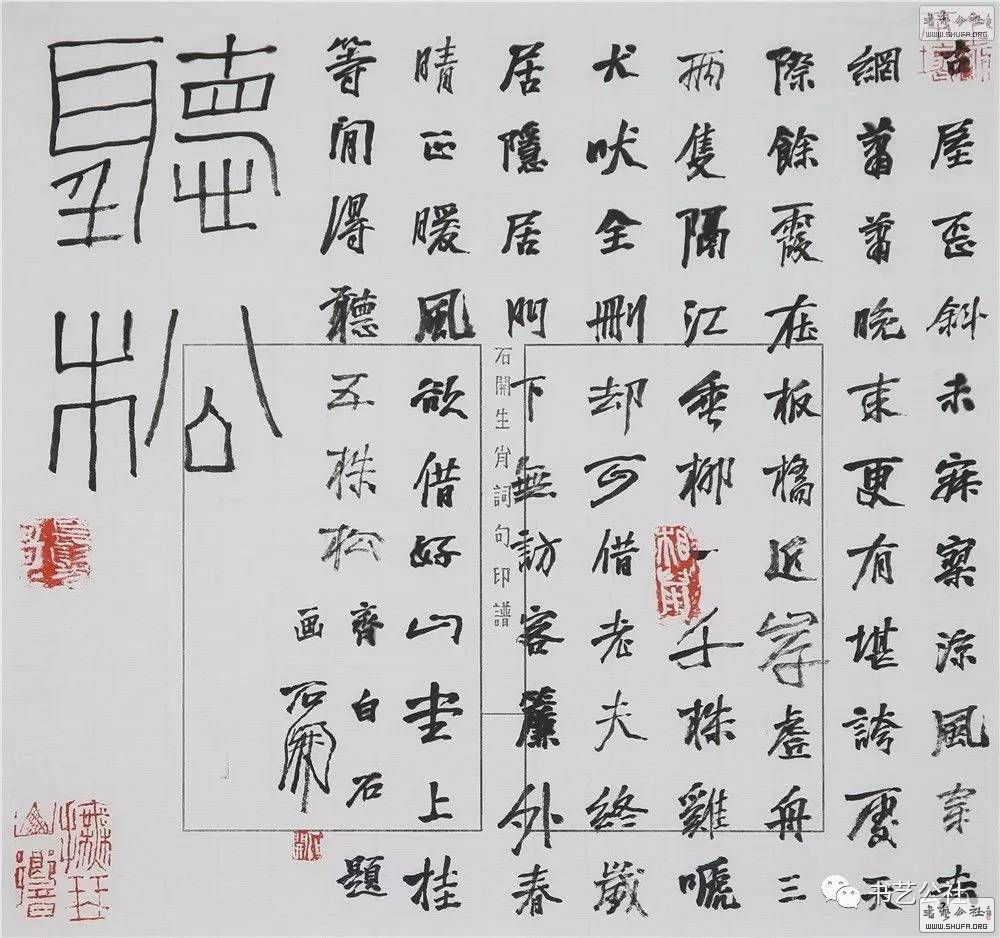 屋歪斜未寂寥涼風穿
網蕭蕭晚來更有堪誇處天
際餘霞在板橋近岸虛舟三
兩隻隔江垂柳一千株雞嘷
犬吠全刪却可借老夫終歲
居隱居門下無訪客簾外春
晴正暖風欲借好山堂上挂
等閒得聽五株松
齊白石題
画 石開
聽松
石開生肖詞句印譜
书艺公社
WWW.SHUFA.ORG
WWW.SHUFA.ORG